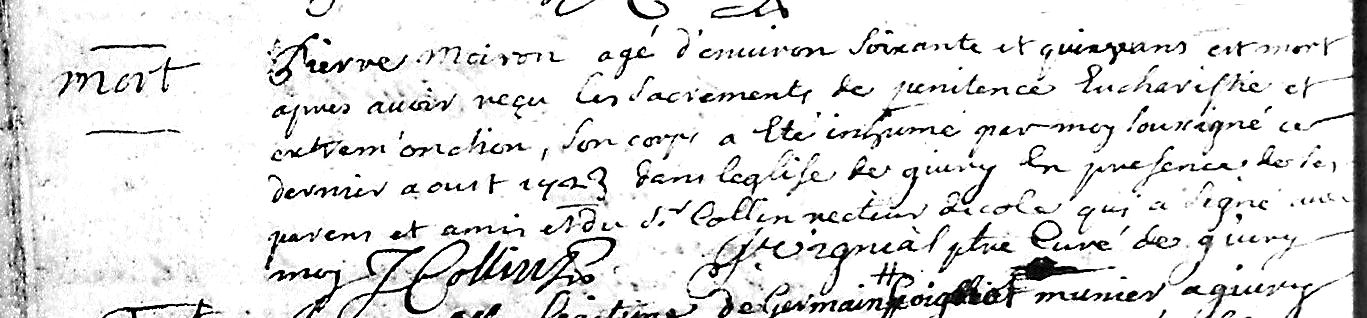 mort
Pierre Moiron agé d'environ Soixante et quinze ans est mort
apres avoir reçu les Sacrements de penitence Eucharistie et
extrem'onction, Son corps a Eté inhumé par moy soussigné ce
dernier aoust 1723 dans leglise de givry En presence de ses
parens et amis et du Sr Collin recteur decole qui a Signé avec
moy J Collin ptre Curé de givry
de Germain munier a givry